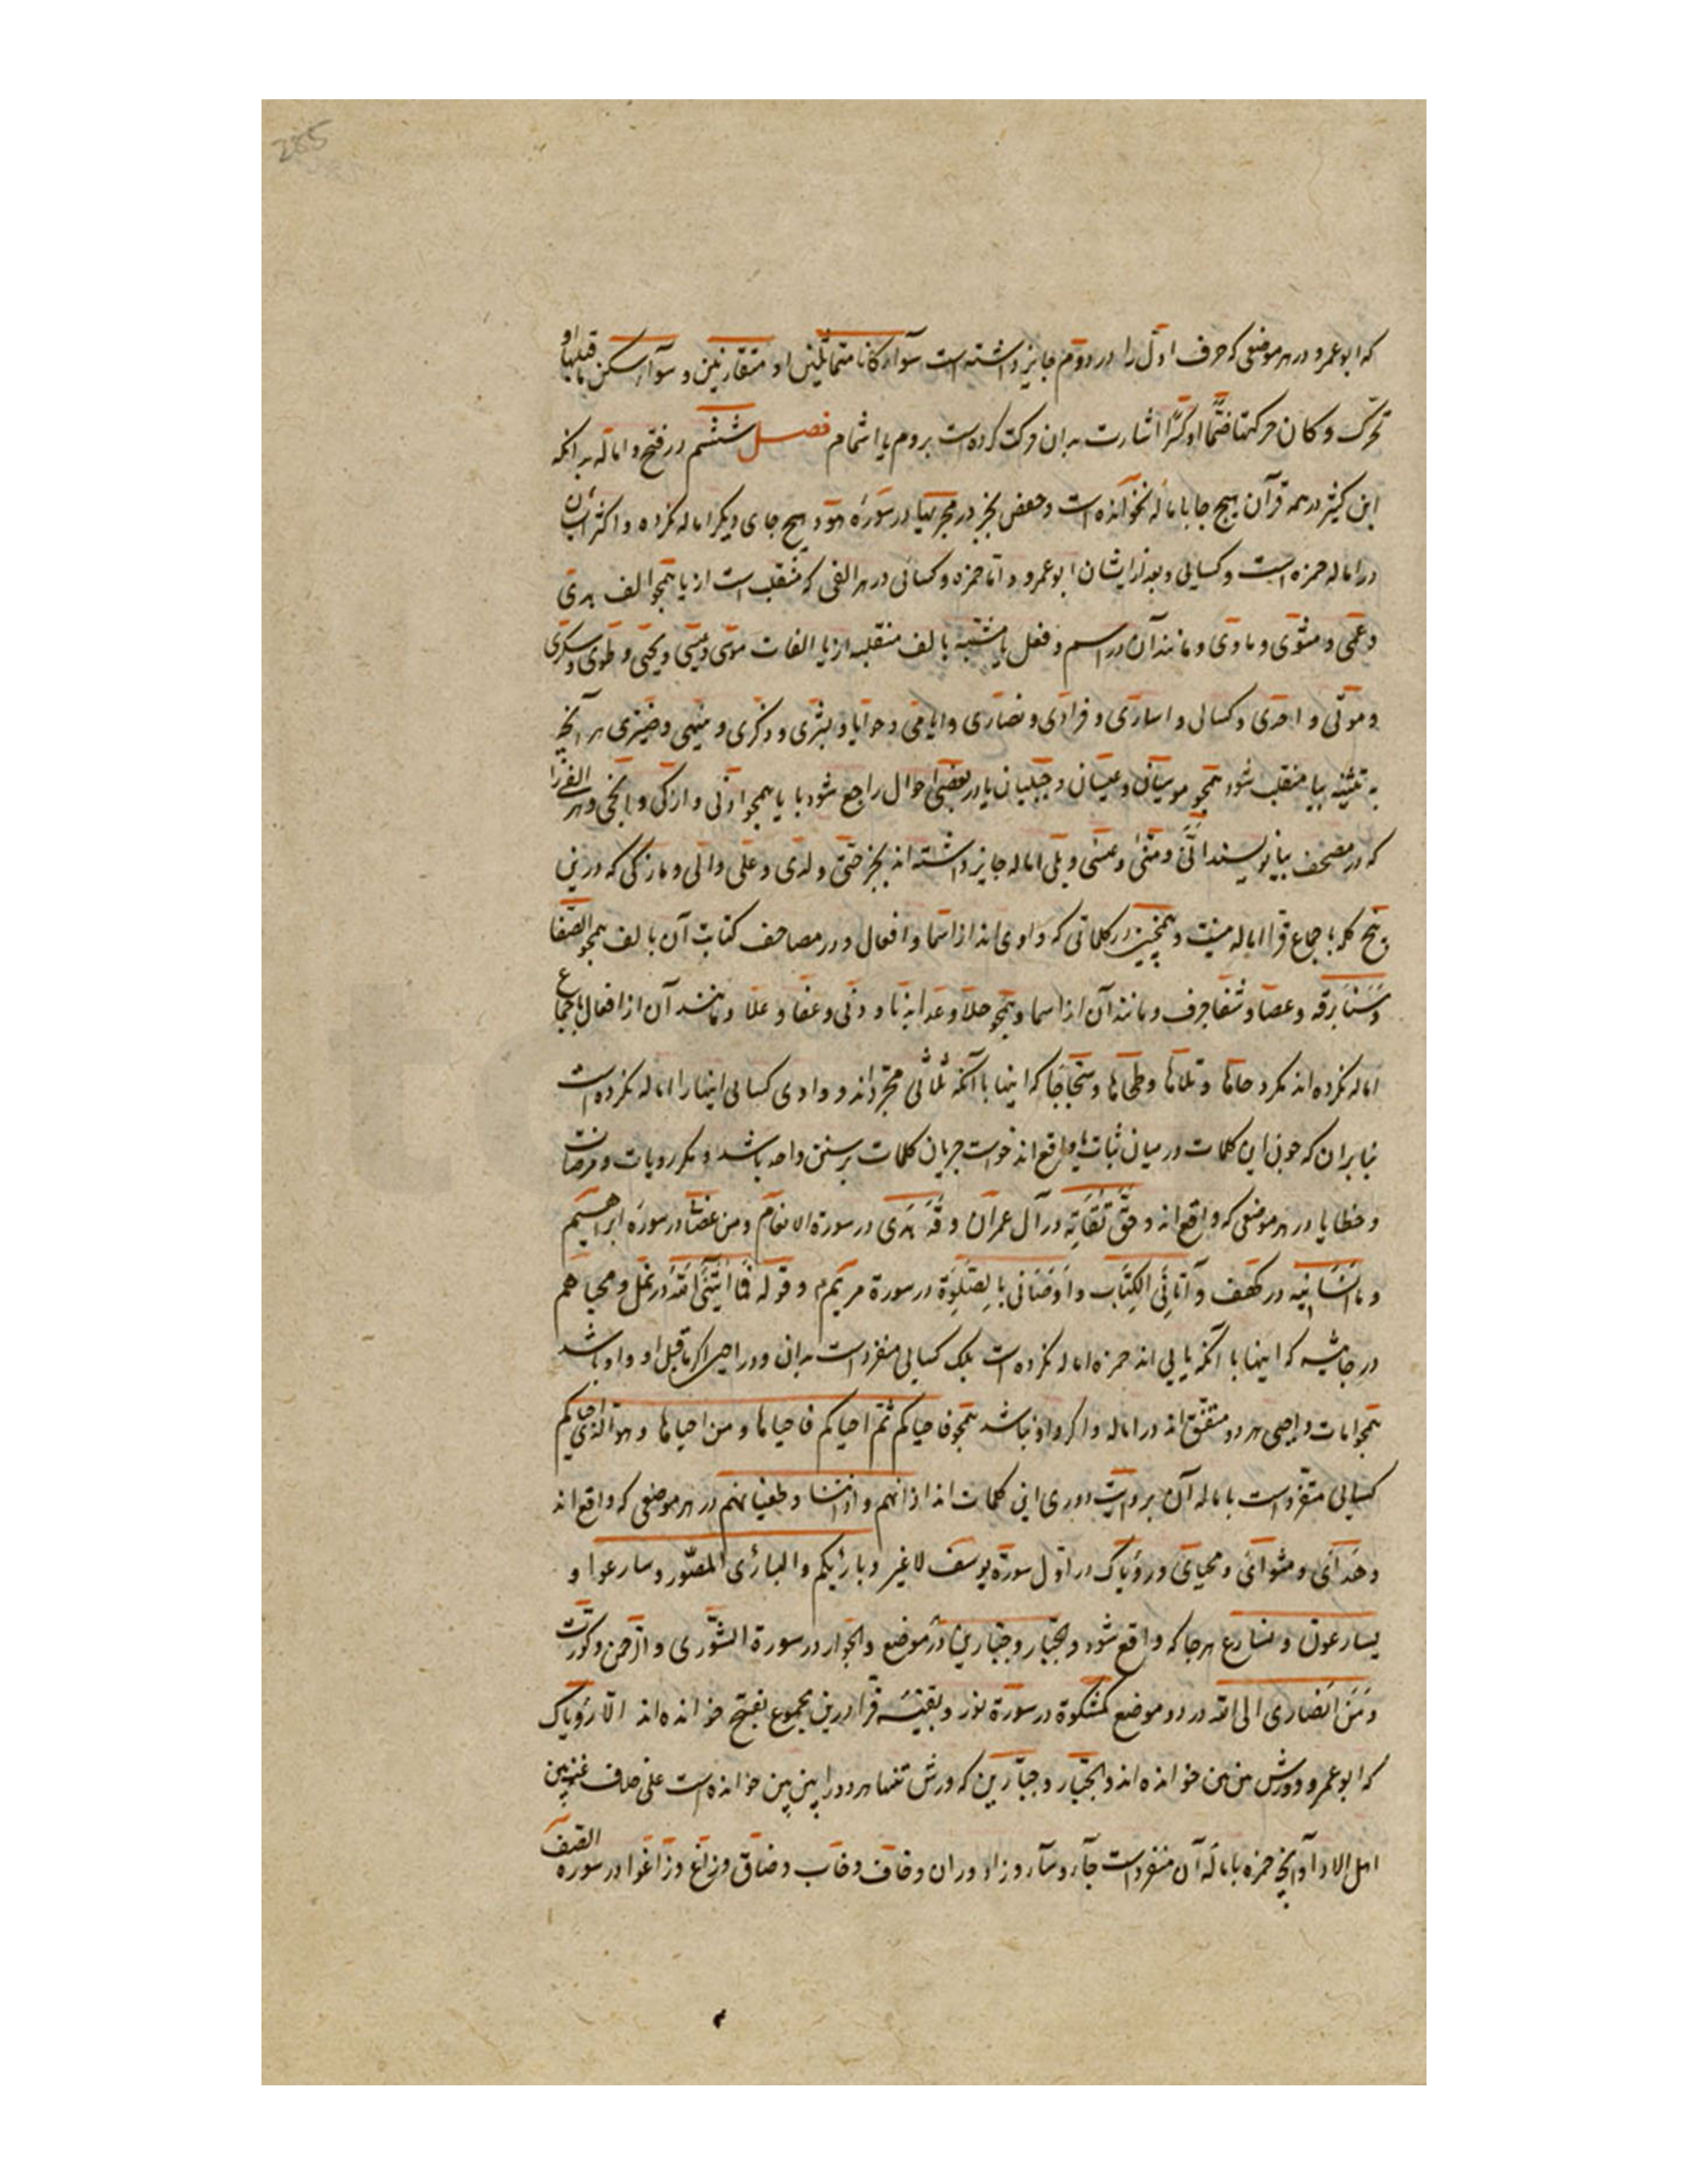 285
که ابوعمرو در هر موضعی که حرف اول را در دوم جایز داشته است سوآء کانا متماثلین او متقارنین و سوآء سکن ما قبلها او
تحرک و کان حرکتها ضمّا او کسرًا اشارت بدان حرکت کرده است بروم یا اشمام فصل ششم در فتح و اماله بدانکه
ابن کثیر در همه قرآن هیچ جا باماله نخوانده است و حفص بجز در مجریها در سورهٔ هود هیچ جای دیگر اماله نکرده و اکثر ایشان
در اماله حمزه است و کسایی و بعد از ایشان ابوعمرو و اما حمزه و کسائی در هر الفی که منقلب است از یا همجو الف هدی
و عمی و مثوی و ماوی و مانند آن در اسم و فعل یا مشبه بالف منقلبه از یا الفات موسی و عیسی و یحیی و طوبی و سکری
و موتی و احدی و کسالی و اساری و فرادی و نصاری و ایامی و حوایا و بشری و ذکری و سیمی و ضیزی هر آنچه
به تثنیه بیا منقلب شود همجو موسیان و عیسیان و حبلیان یا در بعضی احوال راجع شود با یا همجو ادنی و ازکی و انجی و هر الفی را
که در مصحف بیا نویسند انّی و متی و عسی و بلی اماله جایز داشته اند بجز حتی و لدی و علی و الی و ما زکی که درین
پنج کلمه باجماع قرا اماله نیست و همچنین در کلماتی که واوی اند از اسما و افعال و در مصاحف کتابت آن بالف همجو الصفا
و سنا برقه و عصا و شفا جرف و مانند آن از اسما و همجو خلا و عدا و بدا و دنی و عفا و علا و مانند آن از افعال باجماع
اماله نکرده اند مکر دحاها و تلاها و طحاها و سجا که اینها با آنکه ثلاثی مجردند و واوی کسایی اینها را اماله نکرده است
بنابران که چون این کلمات در میان واقع اند خواست جریان کلمات بر سنن واحد باشد و مکر رویات و مرضات
و خطایا در هر موضعی که واقع اند و حق تقاته در آل عمران و قد هدی در سورة الانعام و من عصا در سوره ابراهیم
و ما انسانیه در کهف و آتانی الکتاب و اوصانی بالصلوة در سورة مریم و قوله فما آتینی الله در نمل و محیاهم
در جاثیه که اینها با آنکه یایی اند حمزه اماله نکرده است بلک کسایی منفرد است بدان و در احیی اکر ما قبل او واو باشد
همجو امات و احیی هر دو متفق اند در اماله و اکر واو نباشد همجو فاحیاکم ثم احیاکم فاحیاها و من احیاها و هو الذی احیاکم
کسایی متفرد است باماله آن بروایت دوری این کلمات اند آذانهم و آذاننا و طغیانهم در هر موضعی که واقع اند
و هدای و مثوای و محیای و رؤیاک در اول سورة یوسف لا غیر و بارئکم و البارئ المصور و سارعوا و
یسارعون و نسارع هر جا که واقع شود و الجبار و جبارین در موضع و الجوار در سورة الشوری و الرحمن و کورت
و من انصاری الی الله در دو موضع کمشکوة در سورة نور و بقیه قرا درین مجموع بفتح خوانده اند الا رؤیاک
که ابوعمرو و ورش بین بین خوانده اند و الجبار و جبارین که ورش تنها هر دو را بین بین خوانده است علی خلاف عنه بین
اهل الادا و آنچه حمزه باماله آن منفرد است جآء و شآء و زاد و ران و خاف و خاب و ضاق و زاغ و زاغوا در سوره الصف